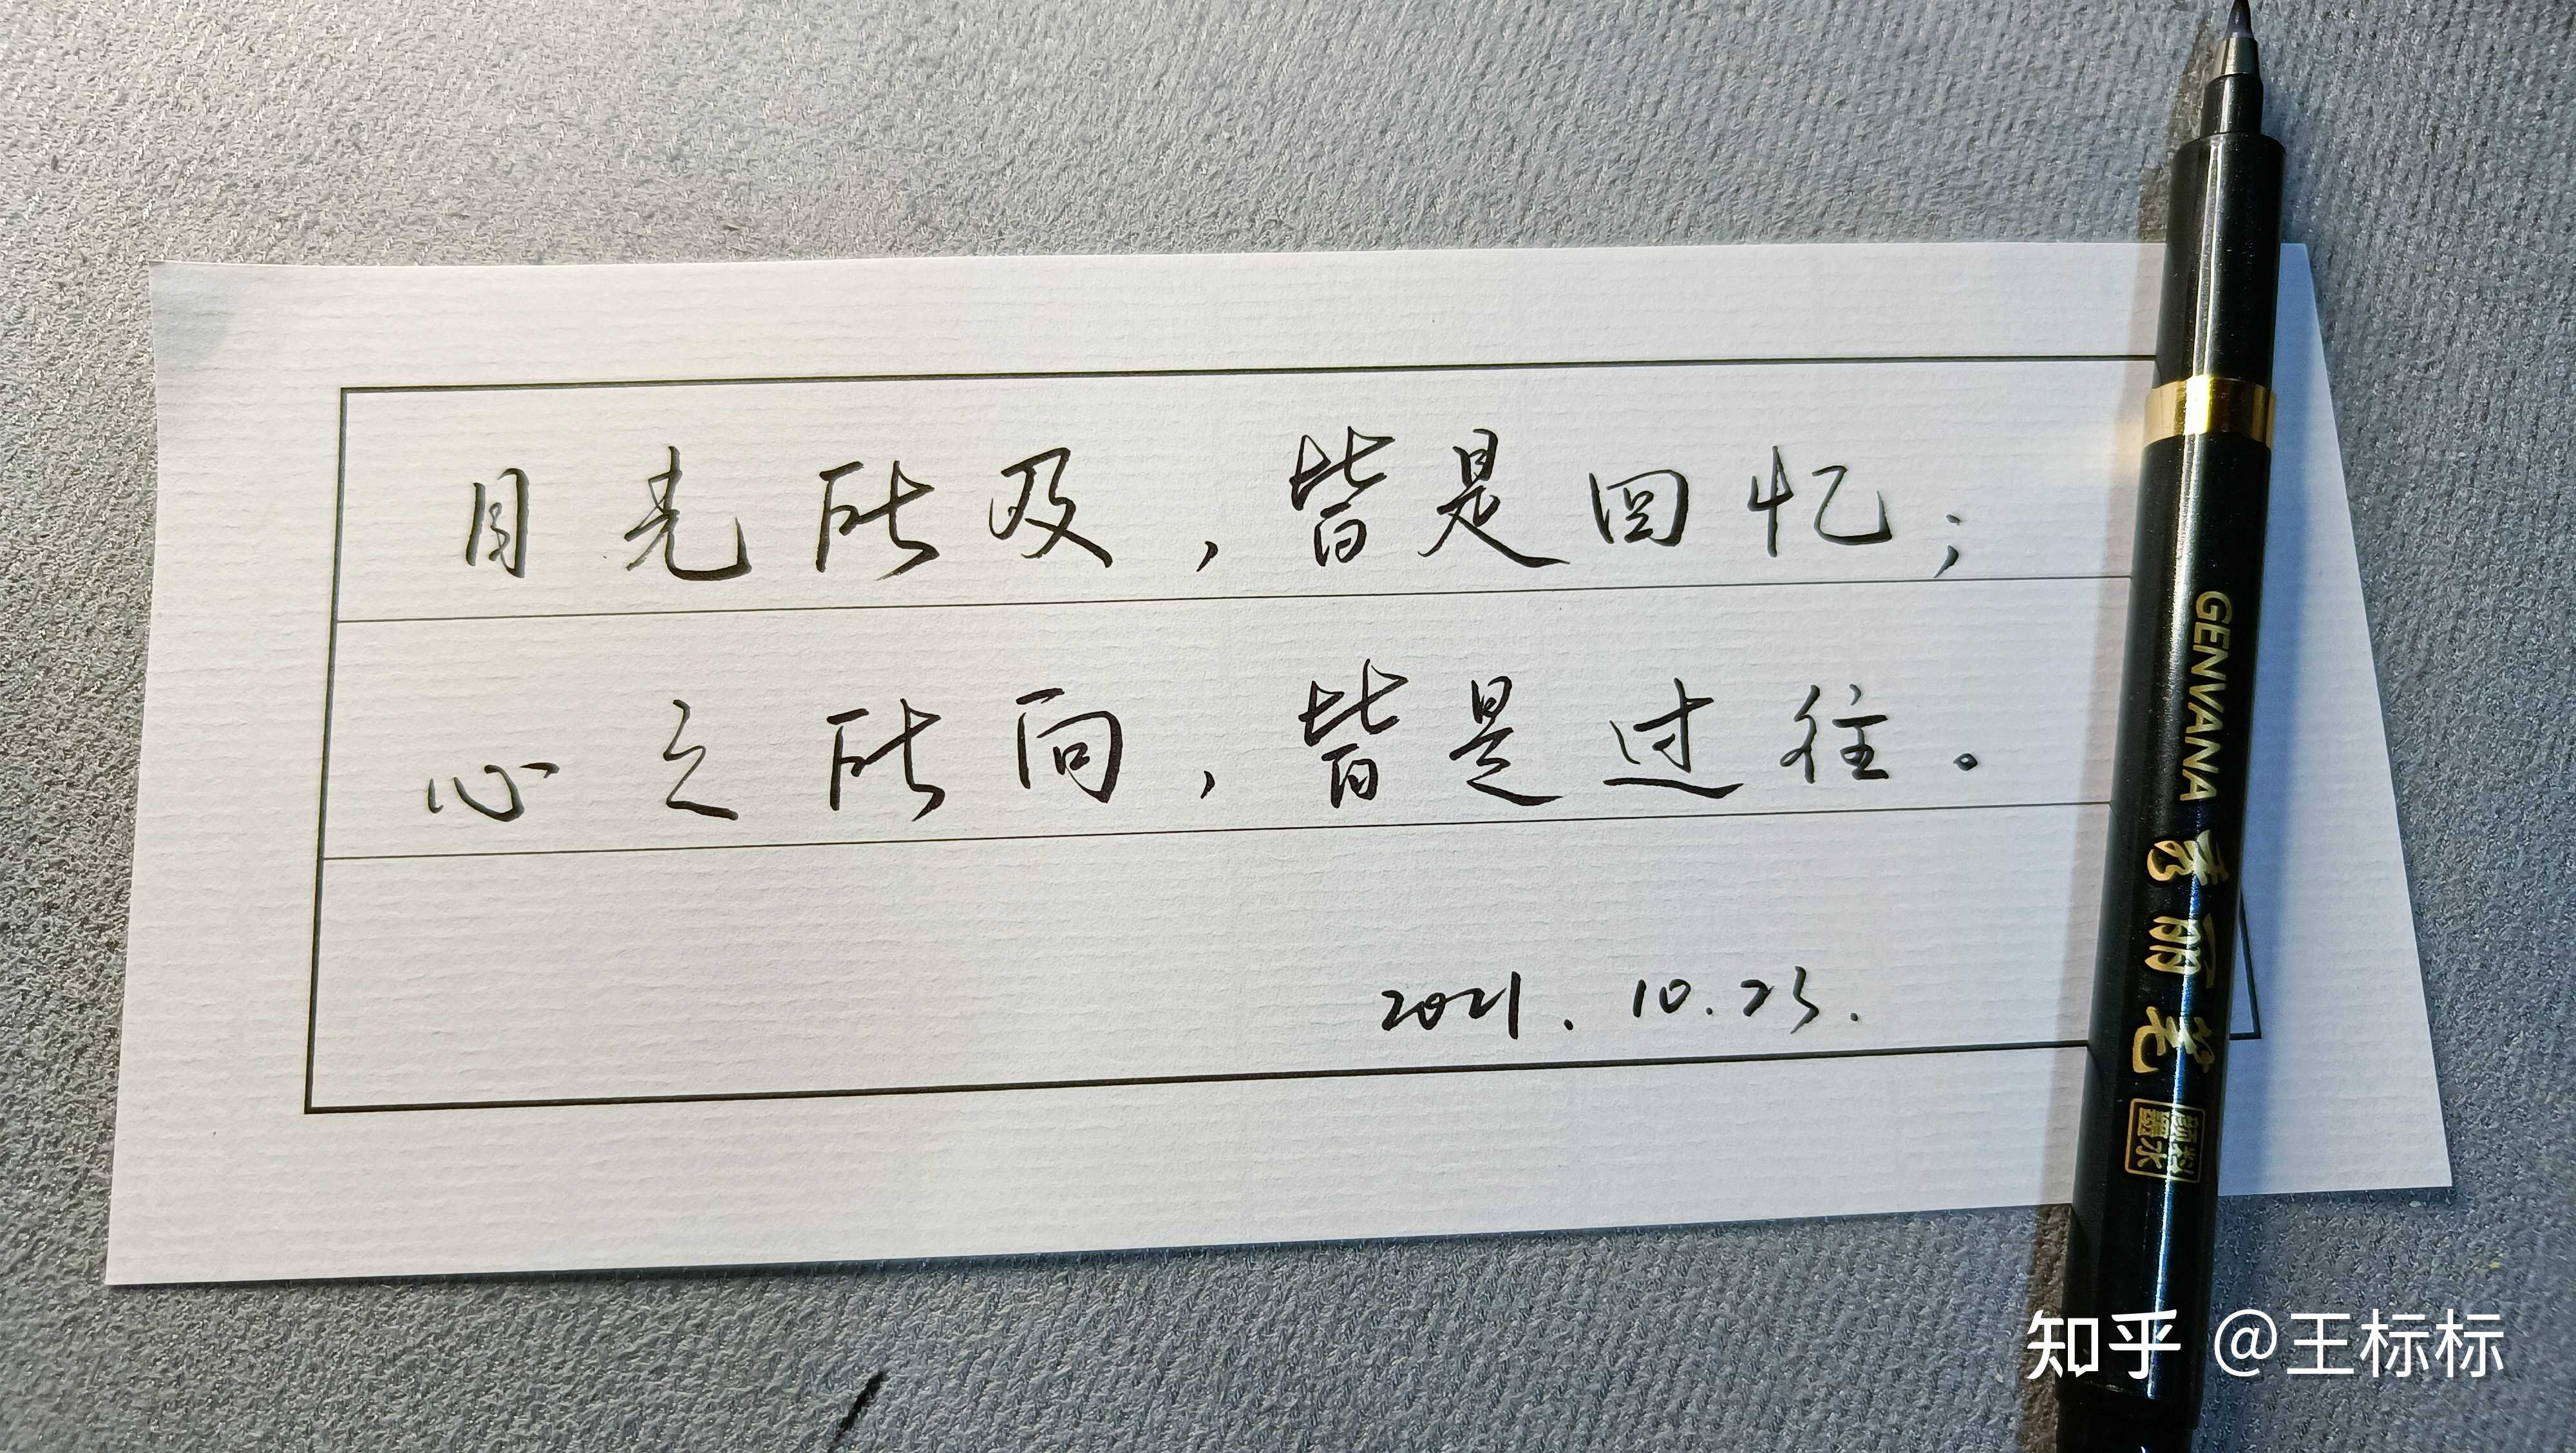 目光所及，皆是回忆；
心之所向，皆是过往。
2021.10.23.
GENVANA 秀丽笔
知乎 @王标标